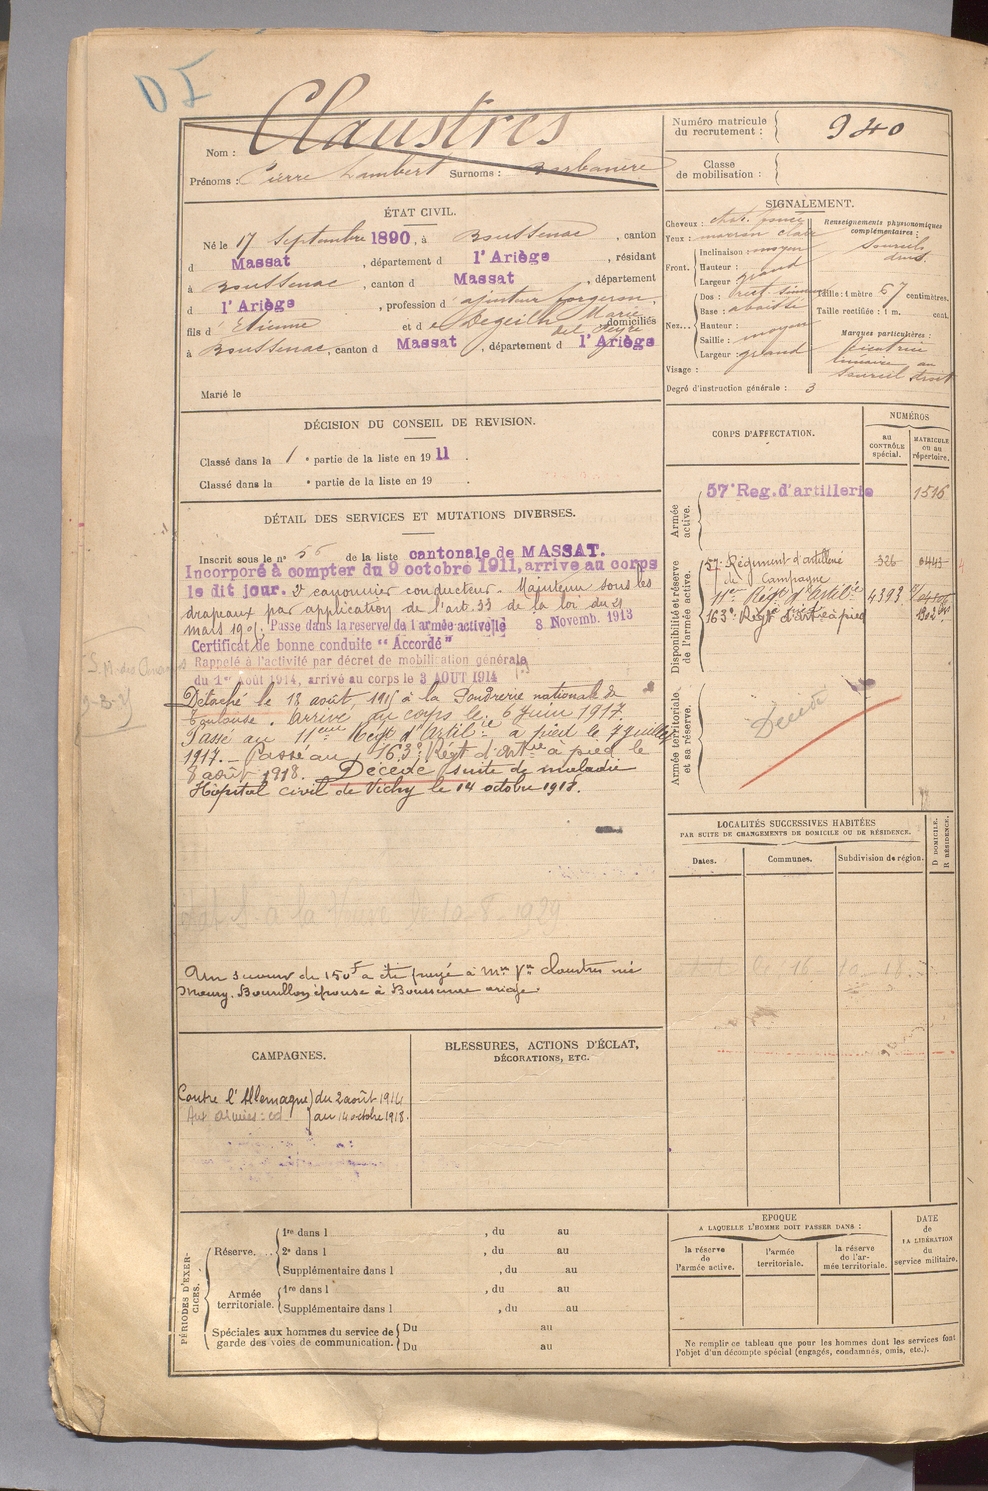 D I
Nom : Claustres
Prénoms : Pierre Lambert Surnoms : Barbanère
Numéro matricule du recrutement : 940
Classe de mobilisation :
ÉTAT CIVIL.
Né le 17 Septembre 1890, à Boussenac, canton
d Massat, département d l'Ariège, résidant
à Boussenac, canton d Massat, département
d l'Ariège, profession d'ajusteur forgeron,
fils d'Etienne et de Degeilh Marie domiciliés
à Boussenac, canton d Massat, département d l'Ariège
Marié le
SIGNALEMENT.
Cheveux : chat. foncé
Yeux : marron clair
Front. Inclinaison : moyen
Hauteur : grand
Largeur grand
Nez... Dos : rect. sinueux
Base : abaissé
Hauteur :
Saillie : moyen
Largeur : grand
Visage :
Renseignements physionomiques complémentaires :
Sourcils
Taille : 1 mètre 67 centimètres.
Taille rectifiée : 1 m. cent.
Marques particulières :
Cicatrice
linéaire au
sourcil droit
Degré d'instruction générale : 3
DÉCISION DU CONSEIL DE REVISION.
Classé dans la 1e partie de la liste en 1911.
Classé dans la e partie de la liste en 19 .
DÉTAIL DES SERVICES ET MUTATIONS DIVERSES.
Inscrit sous le n° 56 de la liste cantonale de MASSAT.
Incorporé à compter du 9 octobre 1911, arrive au corps
le dit jour. 2e canonnier conducteur. Maintenu sous les
drapeaux par application de l'art. 33 de la loi du 21
mars 1905. Passe dans la reserve de l'armée activele 8 Novemb. 1913
Certificat de bonne conduite "Accordé"
Rappelé à l'activité par décret de mobilisation générale
du 1er Août 1914, arrivé au corps le 3 AOUT 1914
Détaché le 18 août 1915 à la Poudrerie nationale de
Toulouse. Arrivé au corps le 6 Juin 1917.
Passé au 11eme Régt d'Artil.ie à pied le 7 juillet
1917. – Passé au 163e Régt d'Art.ie à pied le
8 août 1918. Décédé suite de maladie
Hôpital civil de Vichy le 14 octobre 1918.
à la Veuve le 10-8-1929
Un secours de 150f a été payé à Mme Vve Claustres née
Boussenac ariège.
CORPS D'AFFECTATION.
NUMÉROS
au contrôle spécial.
matricule ou au répertoire.
Armée active.
57e Reg. d'artillerie 1516
Disponibilité et réserve de l'armée active.
57e Régiment d'artillerie de Campagne 326 0443
11e Régt d'Artil.ie 4393
163e Régt d'Art.ie à pied 1302
Armée territoriale et sa réserve.
Décédé
LOCALITÉS SUCCESSIVES HABITÉES
PAR SUITE DE CHANGEMENTS DE DOMICILE OU DE RÉSIDENCE.
Dates. Communes. Subdivision de région. D DOMICILE. R RÉSIDENCE.
CAMPAGNES.
Contre l'Allemagne) du 2 août 1914
Aux armées : cd. } au 14 octobre 1918.
BLESSURES, ACTIONS D'ÉCLAT,
DÉCORATIONS, ETC.
PÉRIODES D'EXERCICES.
Réserve. ... 1re dans l , du au
2e dans l , du au
Supplémentaire dans l , du au
Armée territoriale. 1re dans l , du au
Supplémentaire dans l , du au
Spéciales aux hommes du service de garde des voies de communication. Du au
Du au
EPOQUE
A LAQUELLE L'HOMME DOIT PASSER DANS :
la réserve de l'armée active.
l'armée territoriale.
la réserve de l'armée territoriale.
DATE de LA LIBÉRATION du service militaire.
Ne remplir ce tableau que pour les hommes dont les services font
l'objet d'un décompte spécial (engagés, condamnés, omis, etc.).